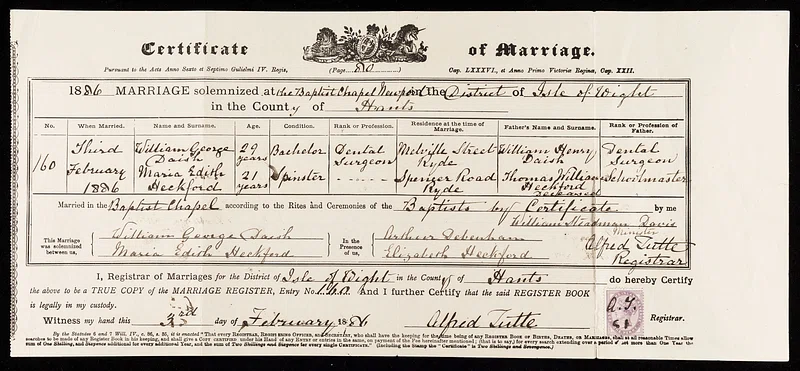 Certificate of Marriage.
Pursuant to the Acts Anno Sexto et Septimo Gulielmi IV. Regis, (Page 80) Cap. LXXXVI., et Anno Primo Victoriæ Reginæ, Cap. XXII.
1886 MARRIAGE solemnized at the Baptist Chapel Newport in the District of Isle of Wight
in the County of Hants
No. When Married. Name and Surname. Age. Condition. Rank or Profession. Residence at the time of Marriage. Father's Name and Surname. Rank or Profession of Father.
160 Third February 1886
William George Daish 29 years Bachelor Dental Surgeon Melville Street Ryde William Henry Daish Dental Surgeon
Maria Edith Heckford 21 years Spinster Spencer Road Ryde Thomas William Heckford deceased Schoolmaster
Married in the Baptist Chapel according to the Rites and Ceremonies of the Baptists by Certificate by me
William Steadman Davis
Minister
This Marriage was solemnized between us, William George Daish Maria Edith Heckford In the Presence of us, Arthur Debenham Elizabeth Heckford
Alfred Tutte
Registrar
I, Registrar of Marriages for the District of Isle of Wight in the County of Hants do hereby Certify
the above to be a TRUE COPY of the MARRIAGE REGISTER, Entry No. 160 And I further Certify that the said REGISTER BOOK
is legally in my custody.
A.T.
Witness my hand this 3rd day of February 1886 Alfred Tutte Registrar.
By the Statutes 6 and 7 Will. IV., c. 86, s. 35, it is enacted "That every REGISTRAR, REGISTERING OFFICER, and SECRETARY, who shall have the keeping for the time being of any REGISTER BOOK of BIRTHS, DEATHS, OR MARRIAGES, shall at all reasonable Times allow
searches to be made of any Register Book in his keeping, and shall give a COPY certified under his Hand of any ENTRY or ENTRIES in the same, on payment of the Fee hereinafter mentioned; (that is to say,) for every search extending over a period not more than One Year the
sum of One Shilling, and Sixpence additional for every additional Year, and the Sum of Two Shillings and Sixpence for every single CERTIFICATE." (Including the Stamp the "Certificate" is Two Shillings and Sevenpence.)